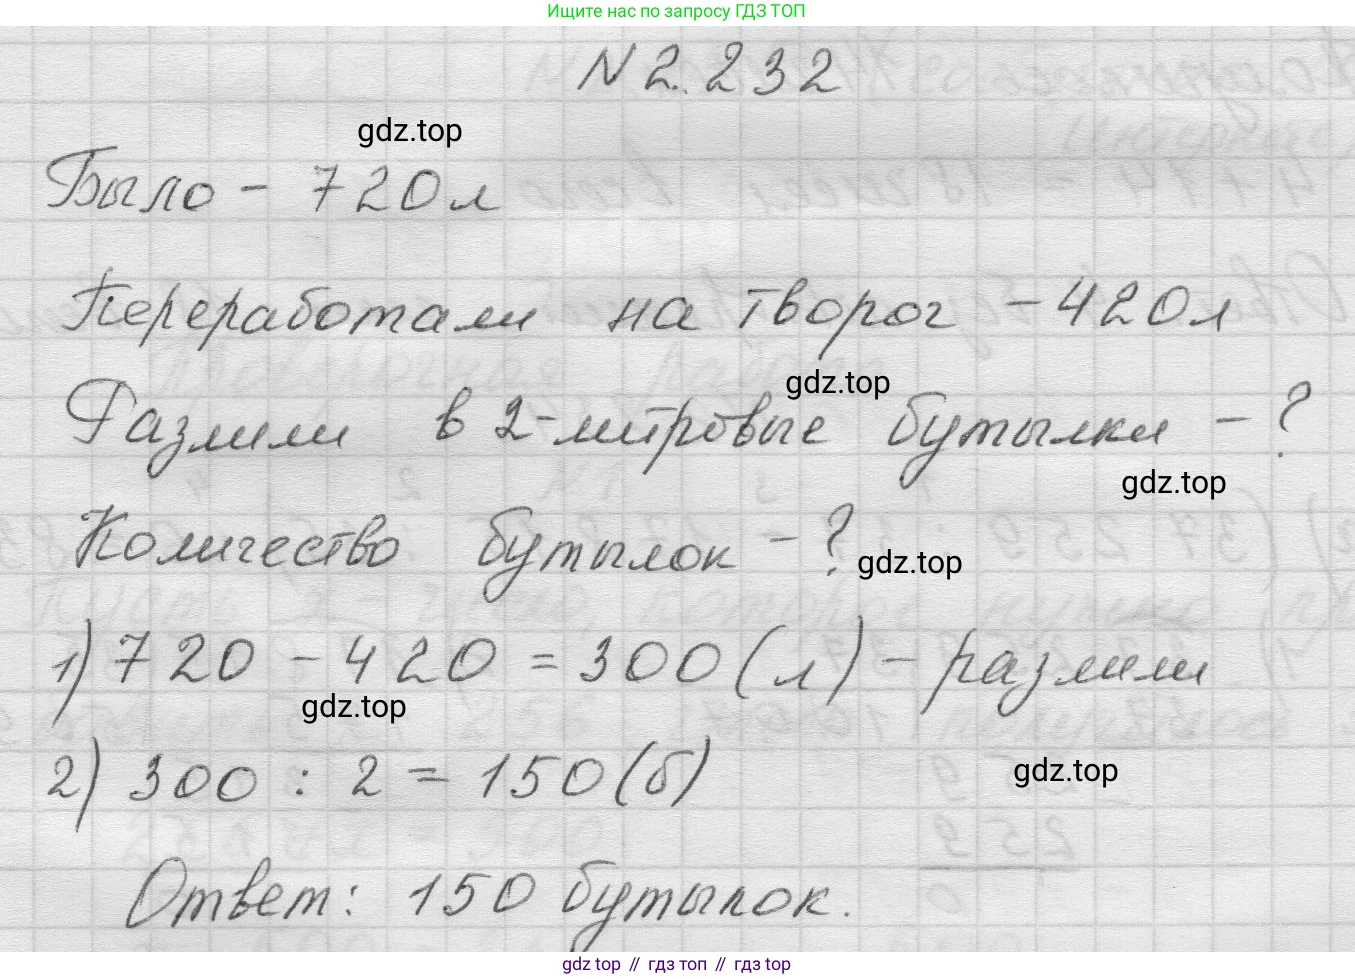 Ищите нас по запросу ГДЗ ТОП
N 2.232
gdz.top
Было - 720л
Переработали на творог - 420л
gdz.top
Разлили в 2-литровые бутылки - ?
gdz.top
Количество бутылок - ?
gdz.top
1) 720 - 420 = 300 (л) - разлили
gdz.top
2) 300 : 2 = 150 (б)
gdz.top
Ответ: 150 бутылок.
gdz top // гдз топ // gdz top